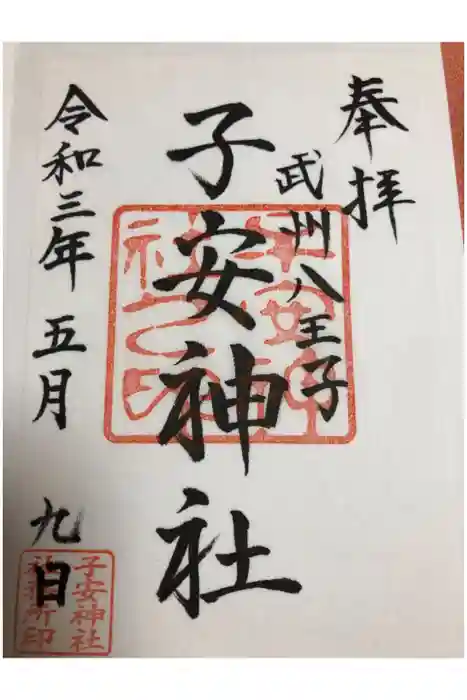 奉拝
武州八王子
子安神社
令和三年五月九日
子安神社
社務所印